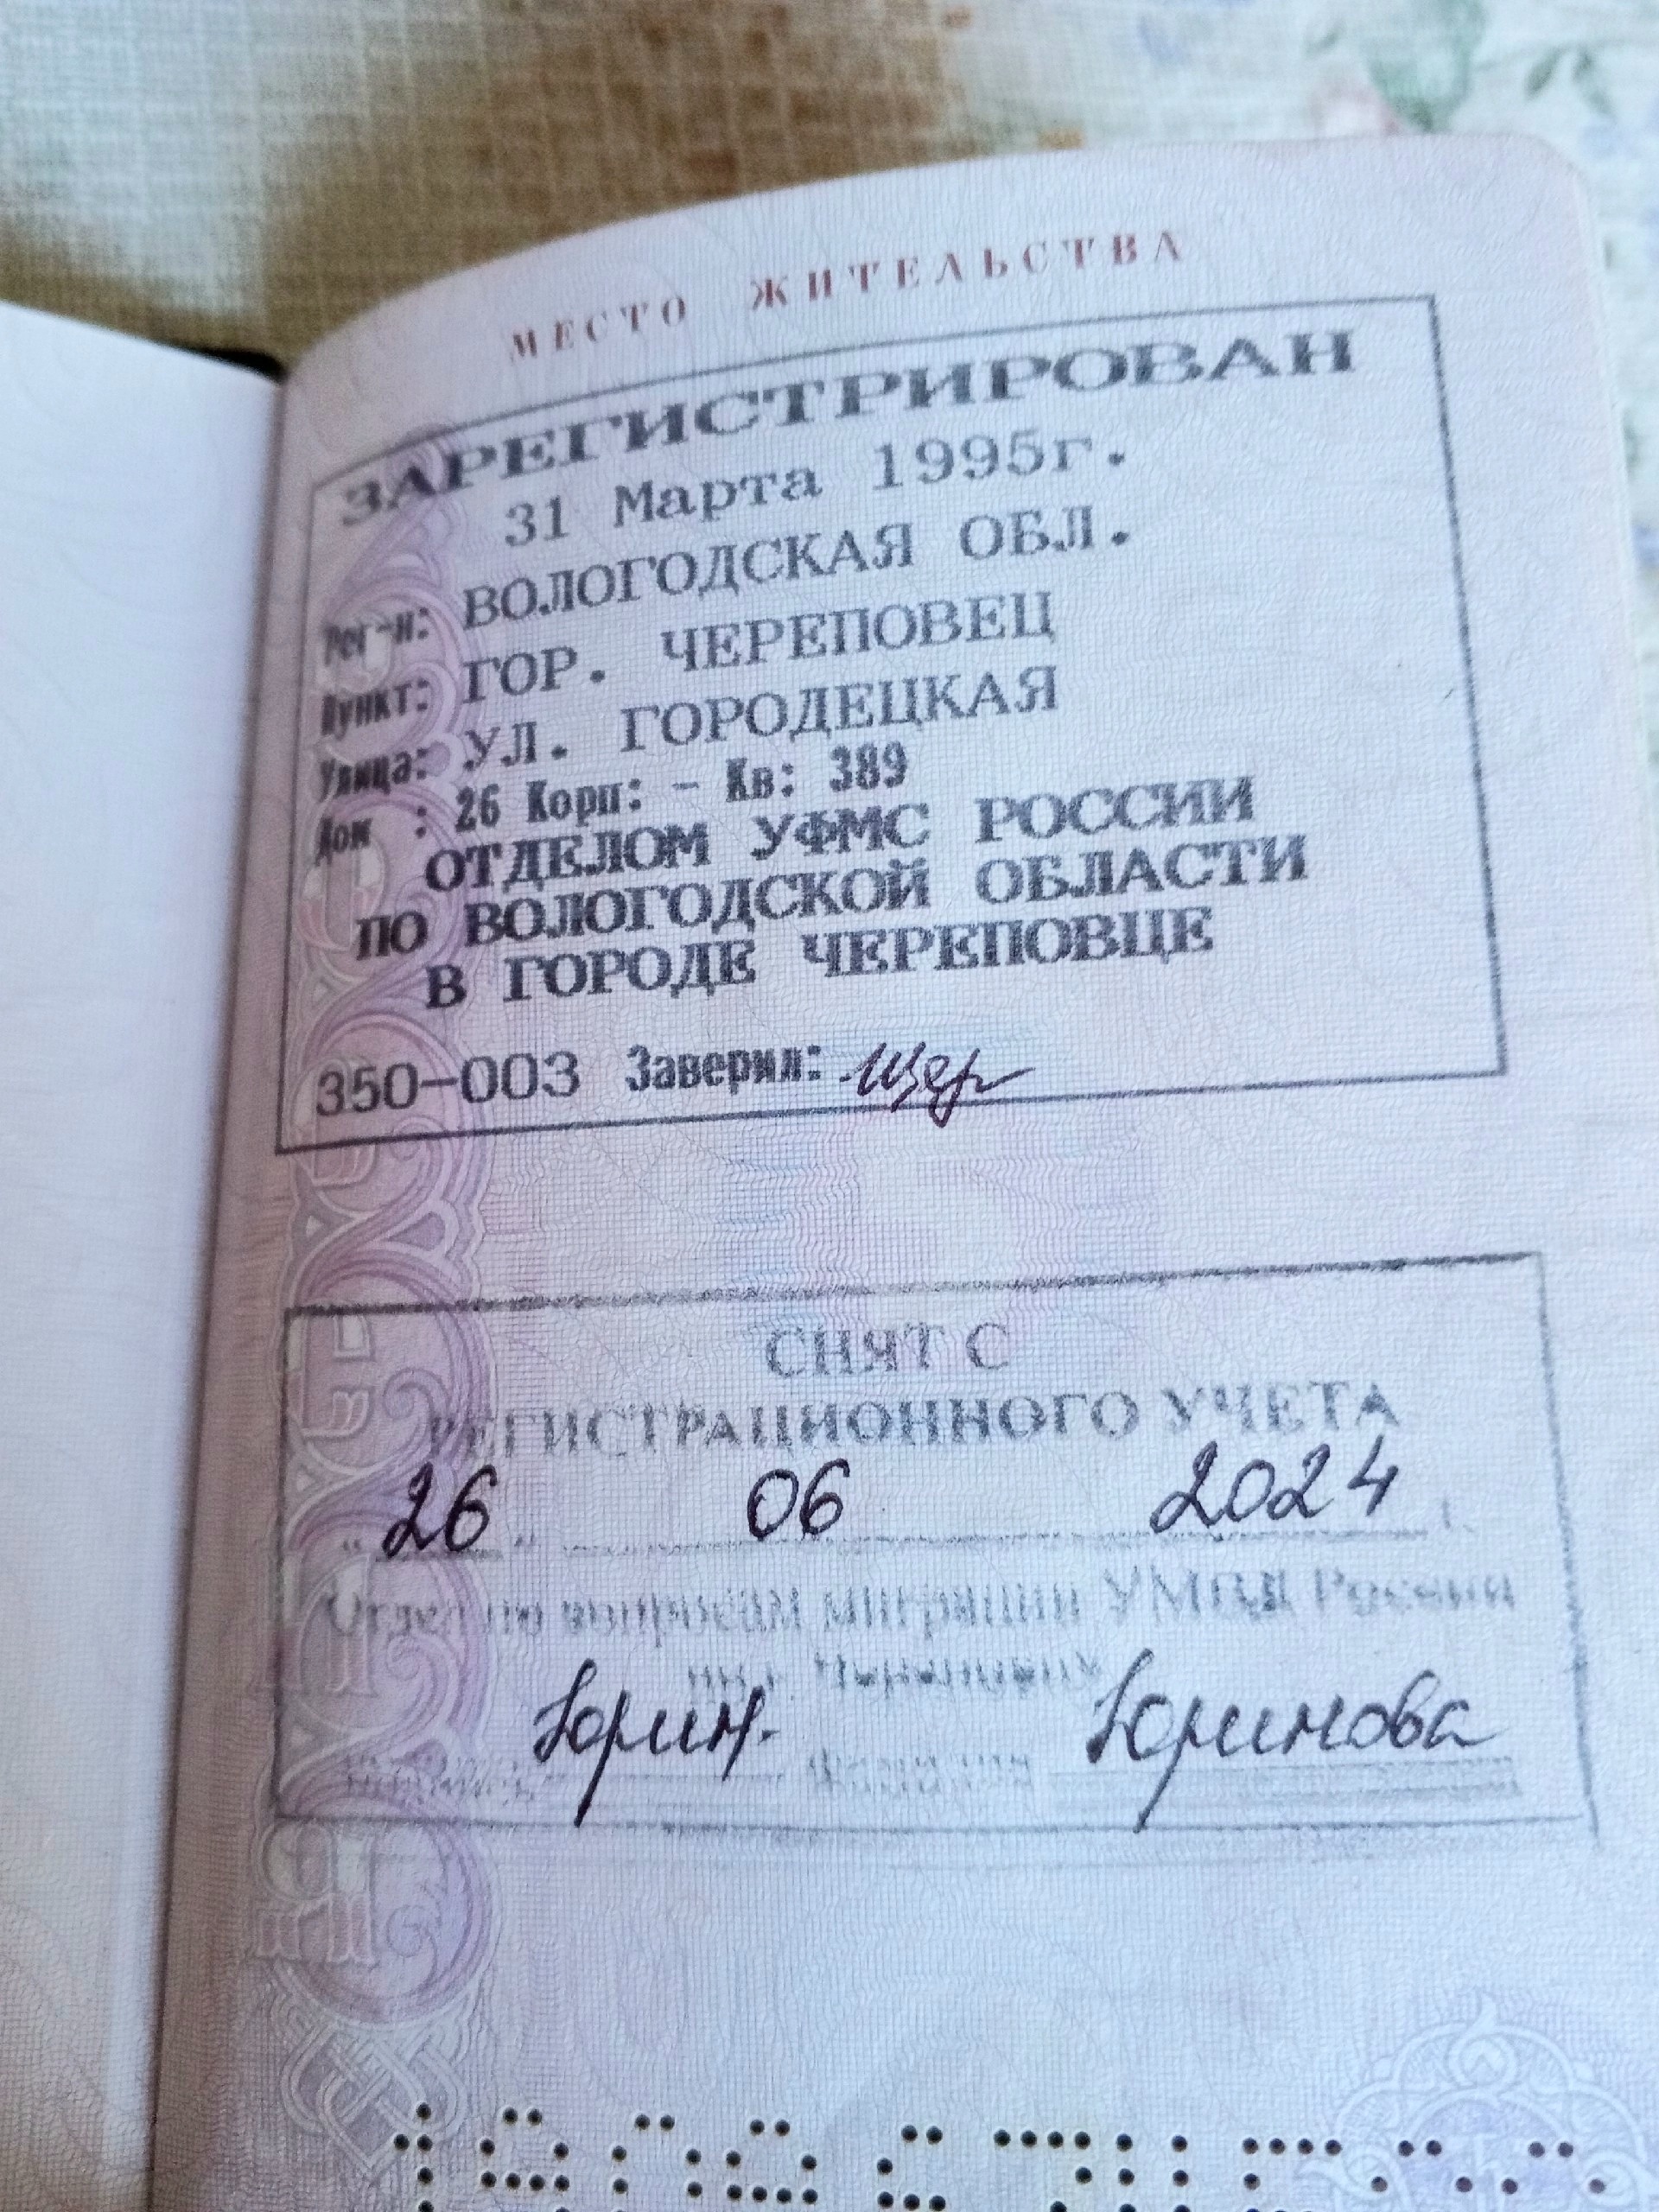 МЕСТО ЖИТЕЛЬСТВА
ЗАРЕГИСТРИРОВАН
31 Марта 1995г.
Рег-н: ВОЛОГОДСКАЯ ОБЛ.
Пункт: ГОР. ЧЕРЕПОВЕЦ
Улица: УЛ. ГОРОДЕЦКАЯ
Дом : 26 Корп: - Кв: 389
ОТДЕЛОМ УФМС РОССИИ
ПО ВОЛОГОДСКОЙ ОБЛАСТИ
В ГОРОДЕ ЧЕРЕПОВЦЕ
350-003 Заверил:
СНЯТ С
РЕГИСТРАЦИОННОГО УЧЕТА
"26" 06 2024 г.
Отдел по вопросам миграции УМВД России
по г. Череповцу
подпись Юрин. фамилия Юринова